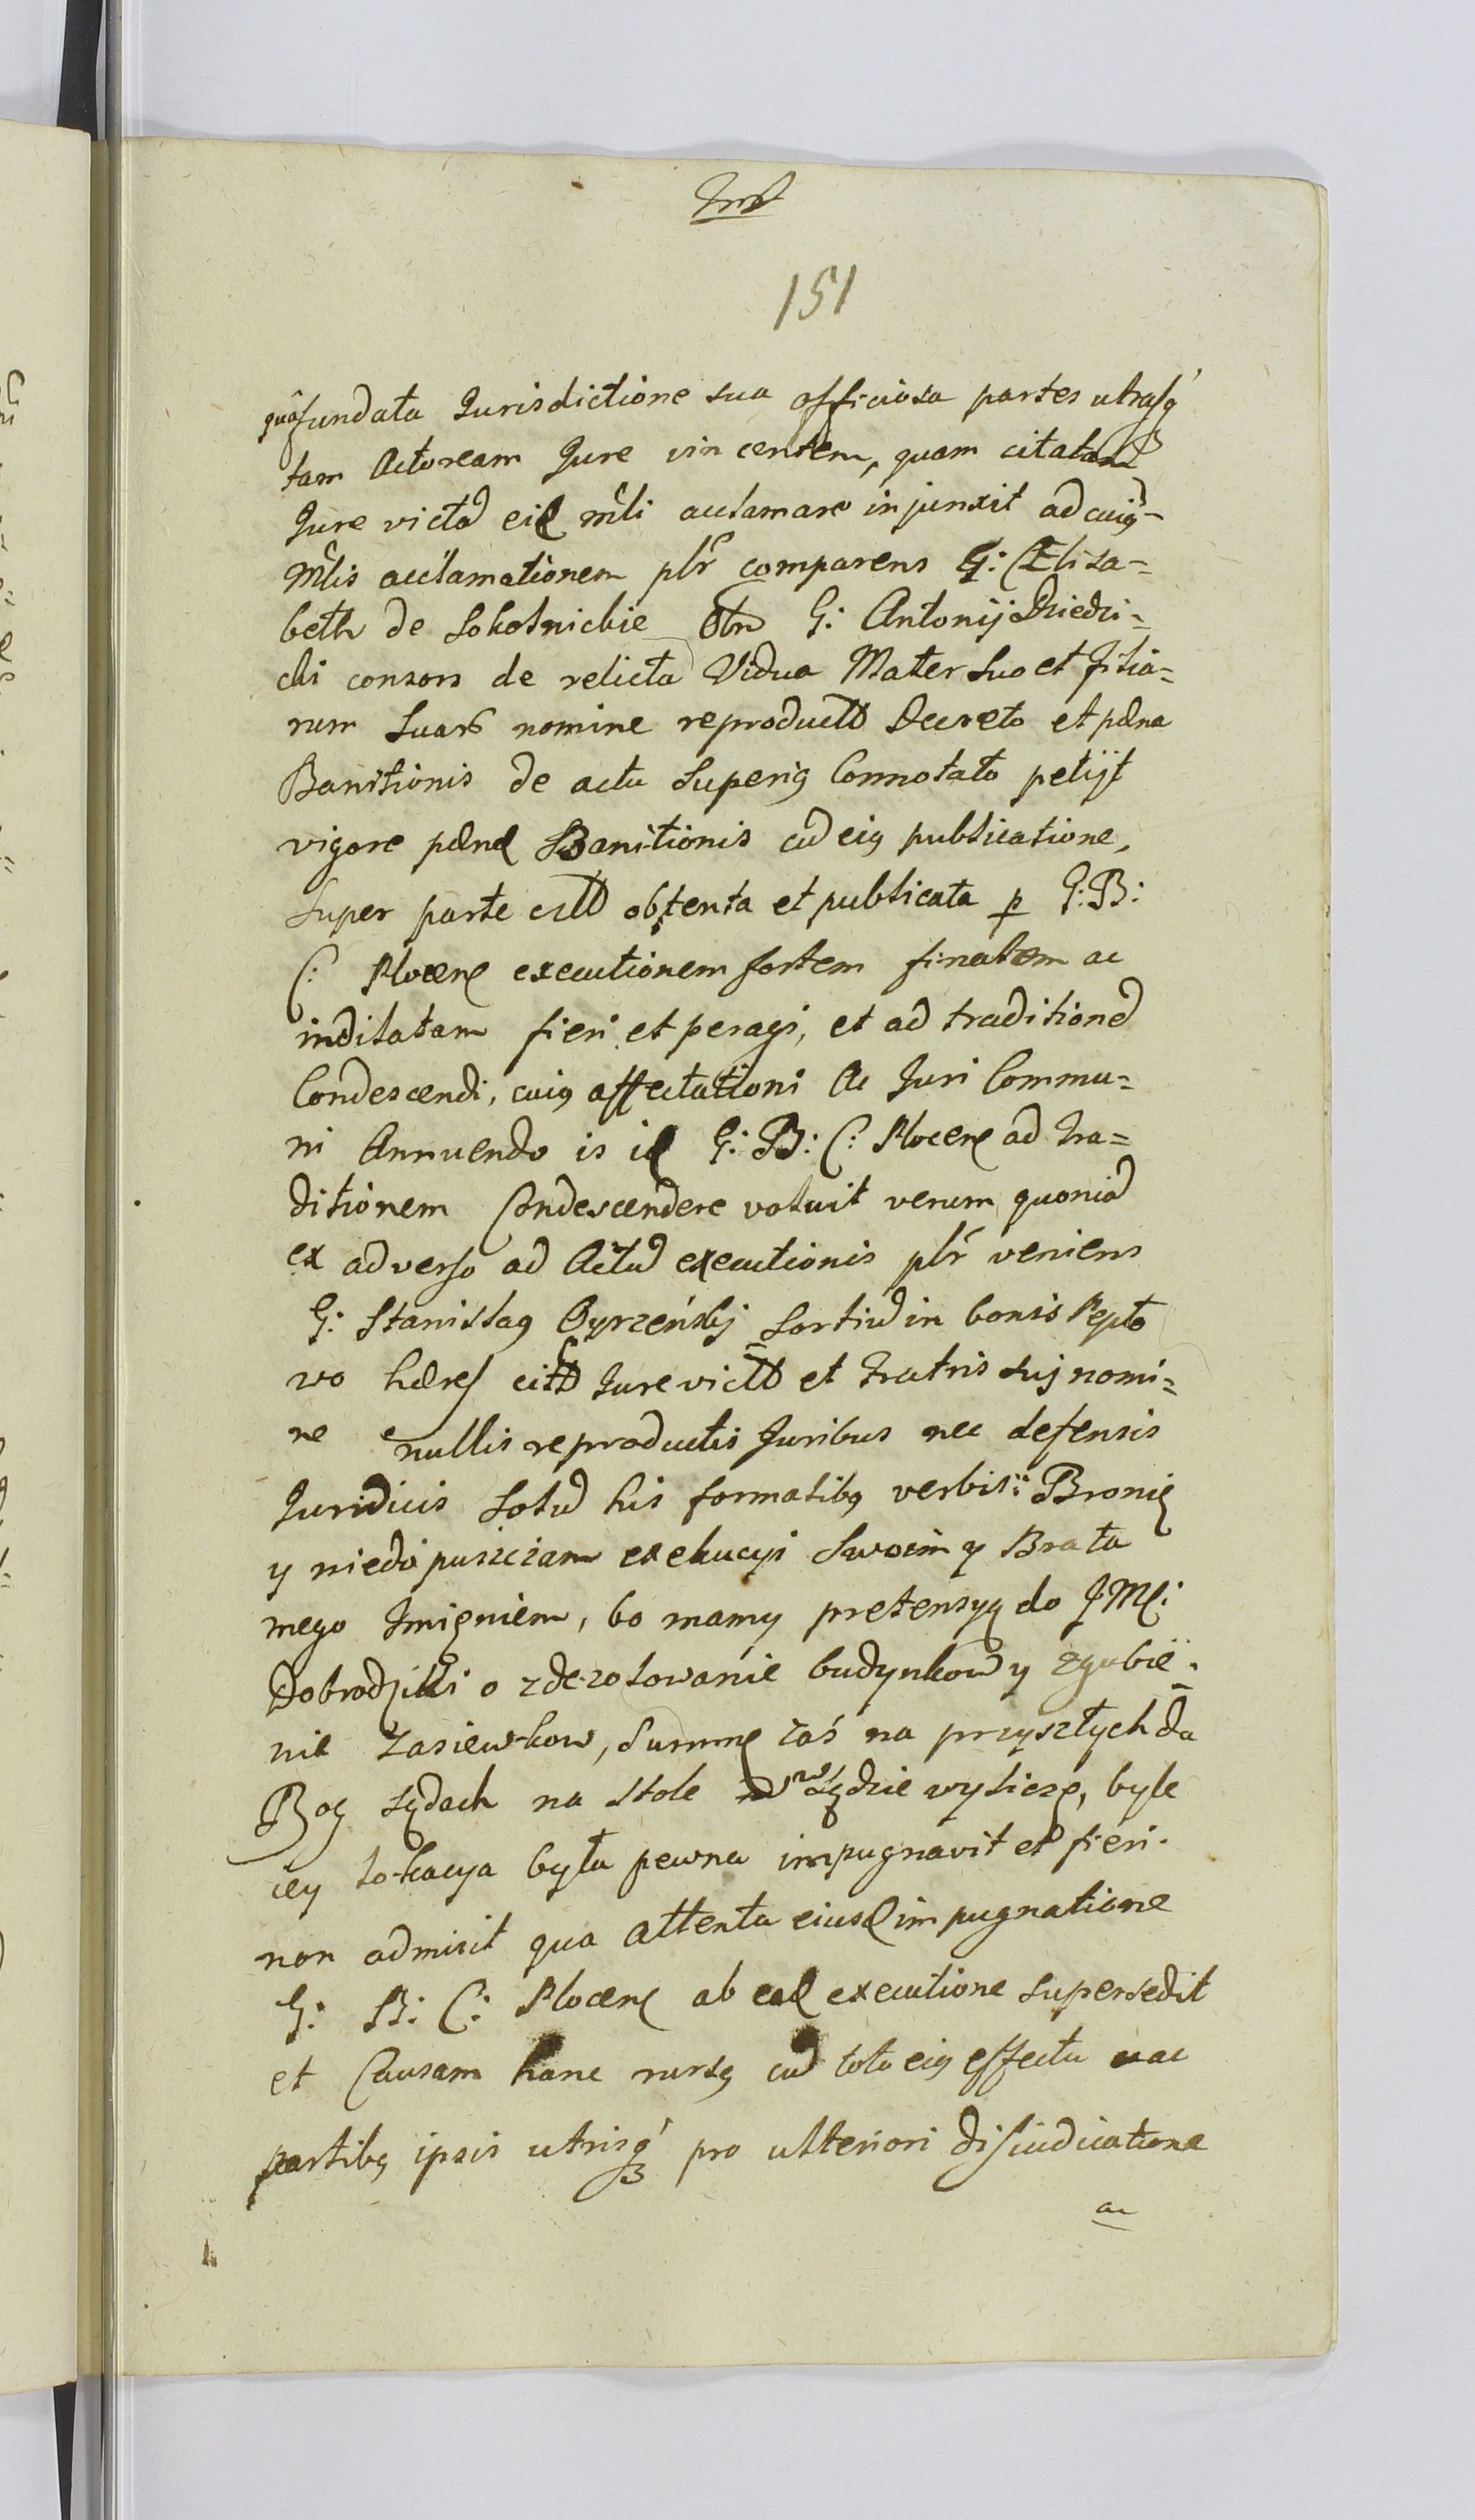 151
quâ fundata Jurisdictione sua officiosa partes utrasq́
tam Actoream Jure vincentem, quam citatam
Jure victã mĩli acclamare injunxit ad cuiꝰ
Mĩlis acclamationem plr̃ comparens G: Eliza=
beth de Sokolnickie Olim G: Antonij Dziedzi=
cki consors de relicta Vidua Mater Suo et filia=
rum Suarũ nomine reproducto Decreto et pœna
Banitionis de actu Superiꝰ Connotato petijt
vigore pœnæ Banitionis cũ eiꝰ publicatione,
Super parte cittã obtenta et publicata p G: B:
C: Plocen executionem fortem finalem ac
indilatam fieri et peragi, et ad traditionẽ
Condescendi, cuiꝰ affectationi Ac Juri Commu=
ni Annuendo is G: B: C: Plocen ad tra=
ditionem Condescendere voluit verum quoniã
ex adverso ad Actũ executionis plr̃ veniens
G: Stanislaꝰ Gyrzeński Sortiũ in bonis Pepło
wo hæres citt Jure vict et Fratris suj nomi=
ne nullis reproductis Juribus nec defensis
Juridicis Solũ his formalibꝰ verbis: Bronię
y niedopuszczam exekucyi Swoim y Brata
mego Imięniem, bo mamy pretensyą do JM:
Dobrodziki o zdezolowanie budynkow y zgubie=
nie zasiewkow, Summę zaś na przyszłych da
Bog sądach na stole w Sądzie wyliczę, byle
iey lokacya była pewna impugnavit et fieri
non admisit qua attenta eiusd impugnatione
G: B: C: Plocen ab ead executione supersedit
et Causam hanc rursꝰ cũ toto eiꝰ effectu ac
partibꝰ ipsis utrisq́ pro ulteriori disiudicatione
ac